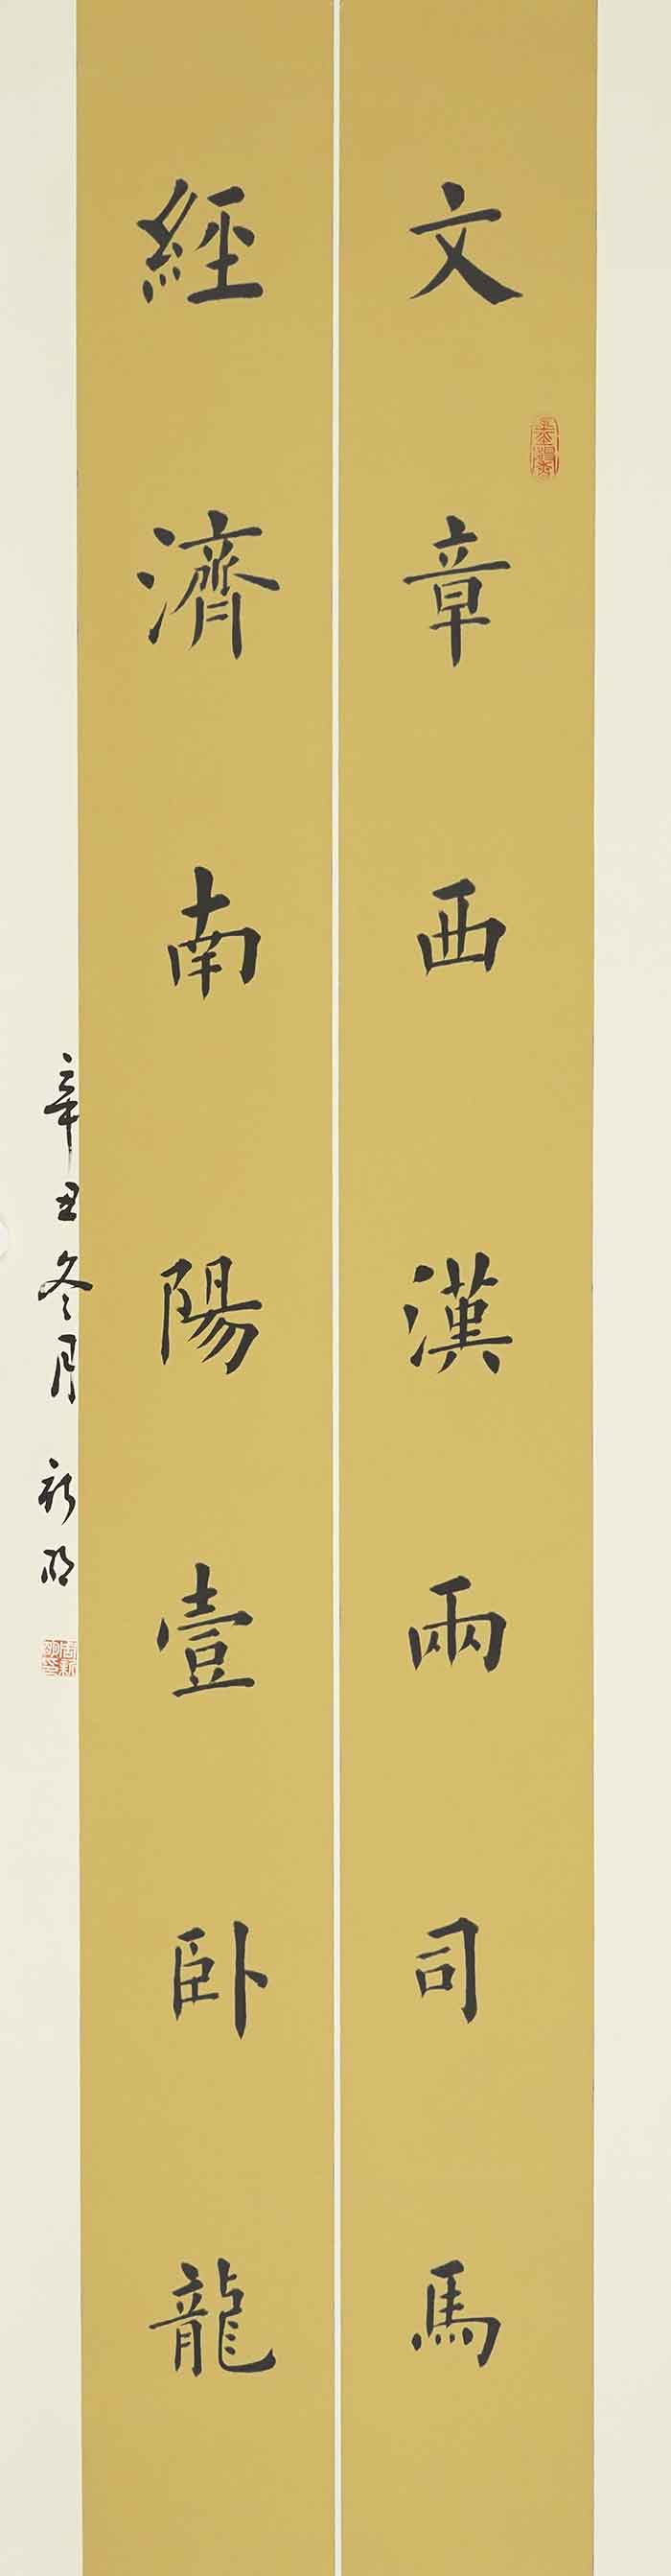 文章西漢兩司馬
經濟南陽壹卧龍
辛丑冬月 新明